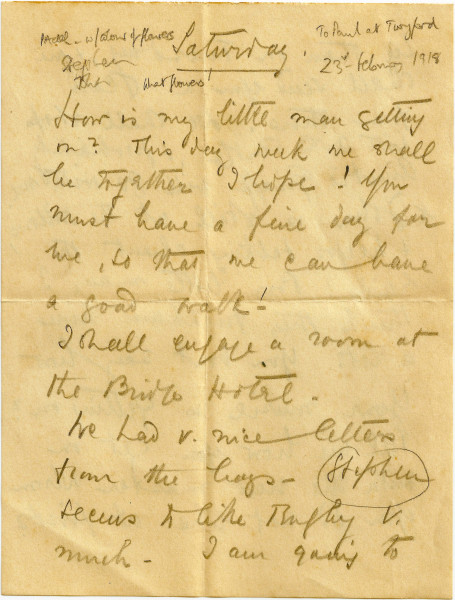 Saturday.
To Paul at Twyford
23rd February 1918
Stephen
what flowers!
How is my little man getting
on? This day week we shall
be together I hope! You
must have a fine day for
me, so that we can have
a good walk!
I shall engage a room at
the Bridge Hotel.
We had v. nice letters
from the boys - Stephen
seems to like Rugby v.
much - I am going to